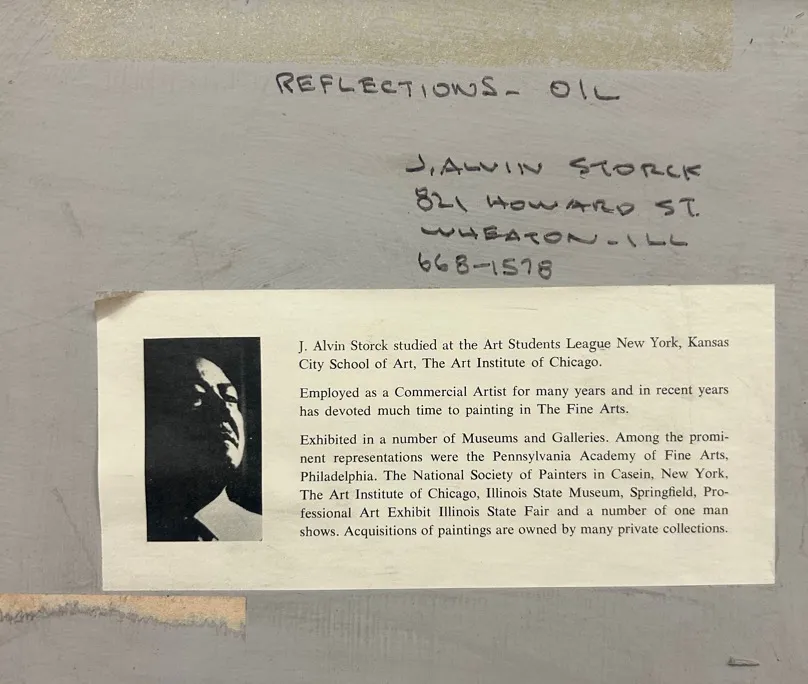 REFLECTIONS- OIL
J. ALVIN STORCK
821 HOWARD ST.
WHEATON-ILL
668-1578
J. Alvin Storck studied at the Art Students League New York, Kansas
City School of Art, The Art Institute of Chicago.
Employed as a Commercial Artist for many years and in recent years
has devoted much time to painting in The Fine Arts.
Exhibited in a number of Museums and Galleries. Among the promi-
nent representations were the Pennsylvania Academy of Fine Arts,
Philadelphia. The National Society of Painters in Casein, New York,
The Art Institute of Chicago, Illinois State Museum, Springfield, Pro-
fessional Art Exhibit Illinois State Fair and a number of one man
shows. Acquisitions of paintings are owned by many private collections.